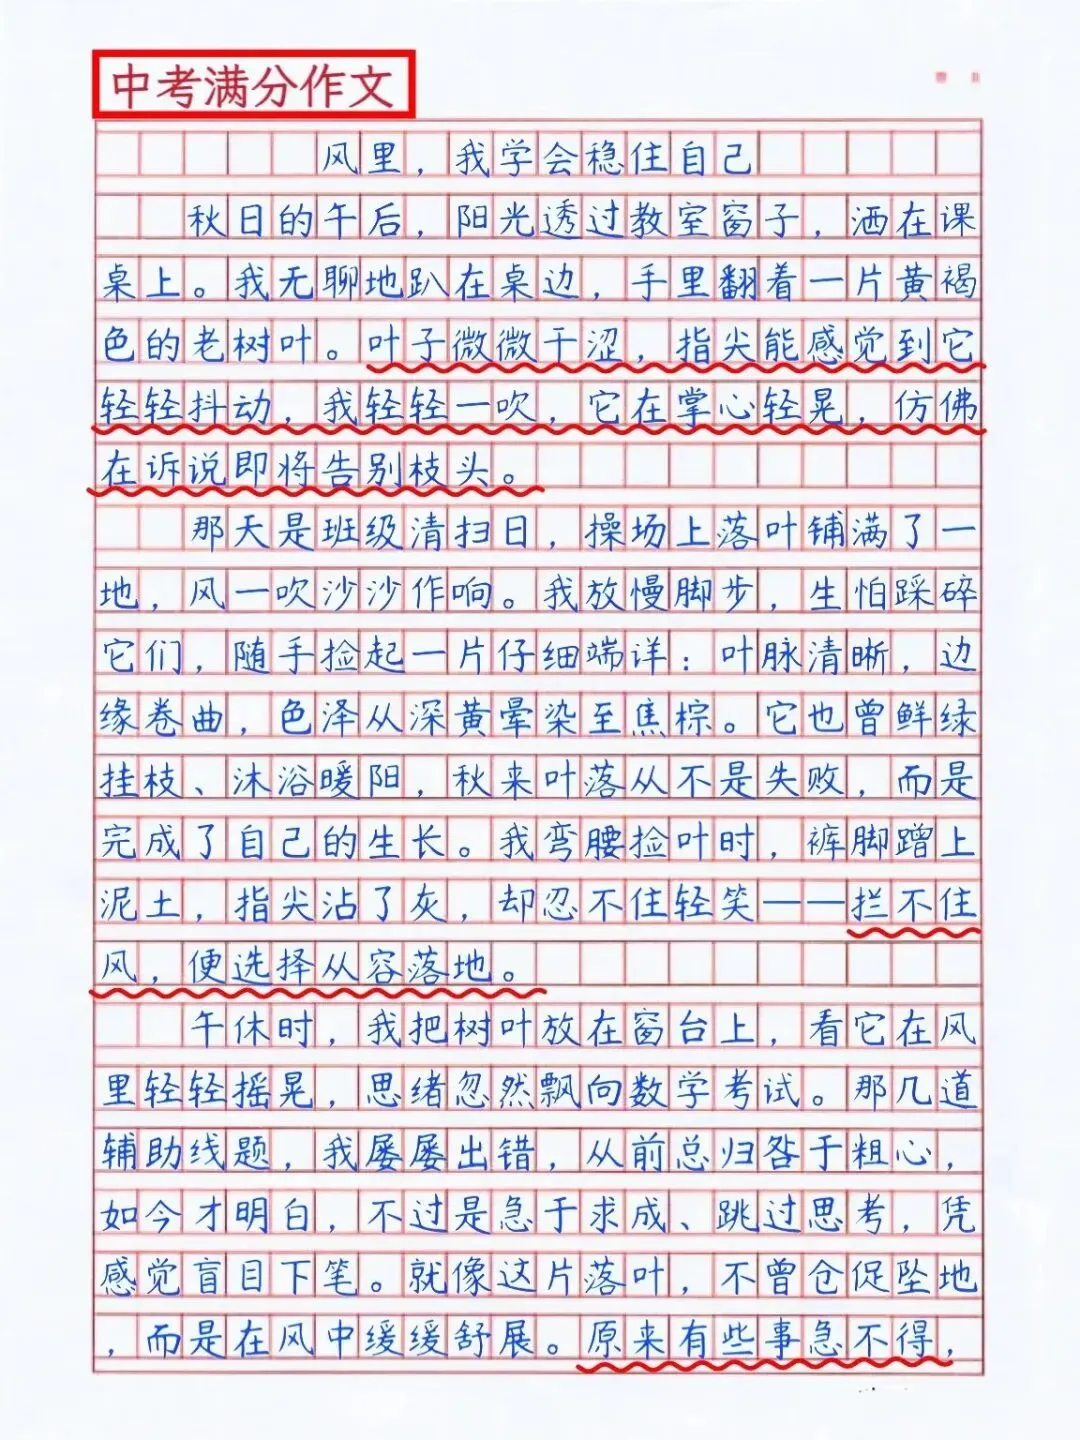 中考满分作文
风里，我学会稳住自己
秋日的午后，阳光透过教室窗子，洒在课
桌上。我无聊地趴在桌边，手里翻着一片黄褐
色的老树叶。叶子微微干涩，指尖能感觉到它
轻轻抖动，我轻轻一吹，它在掌心轻晃，仿佛
在诉说即将告别枝头。
那天是班级清扫日，操场上落叶铺满了一
地，风一吹沙沙作响。我放慢脚步，生怕踩碎
它们，随手捡起一片仔细端详：叶脉清晰，边
缘卷曲，色泽从深黄晕染至焦棕。它也曾鲜绿
挂枝、沐浴暖阳，秋来叶落从不是失败，而是
完成了自己的生长。我弯腰捡叶时，裤脚蹭上
泥土，指尖沾了灰，却忍不住轻笑——拦不住
风，便选择从容落地。
午休时，我把树叶放在窗台上，看它在风
里轻轻摇晃，思绪忽然飘向数学考试。那几道
辅助线题，我屡屡出错，从前总归咎于粗心，
如今才明白，不过是急于求成、跳过思考，凭
感觉盲目下笔。就像这片落叶，不曾仓促坠地
，而是在风中缓缓舒展。原来有些事急不得，